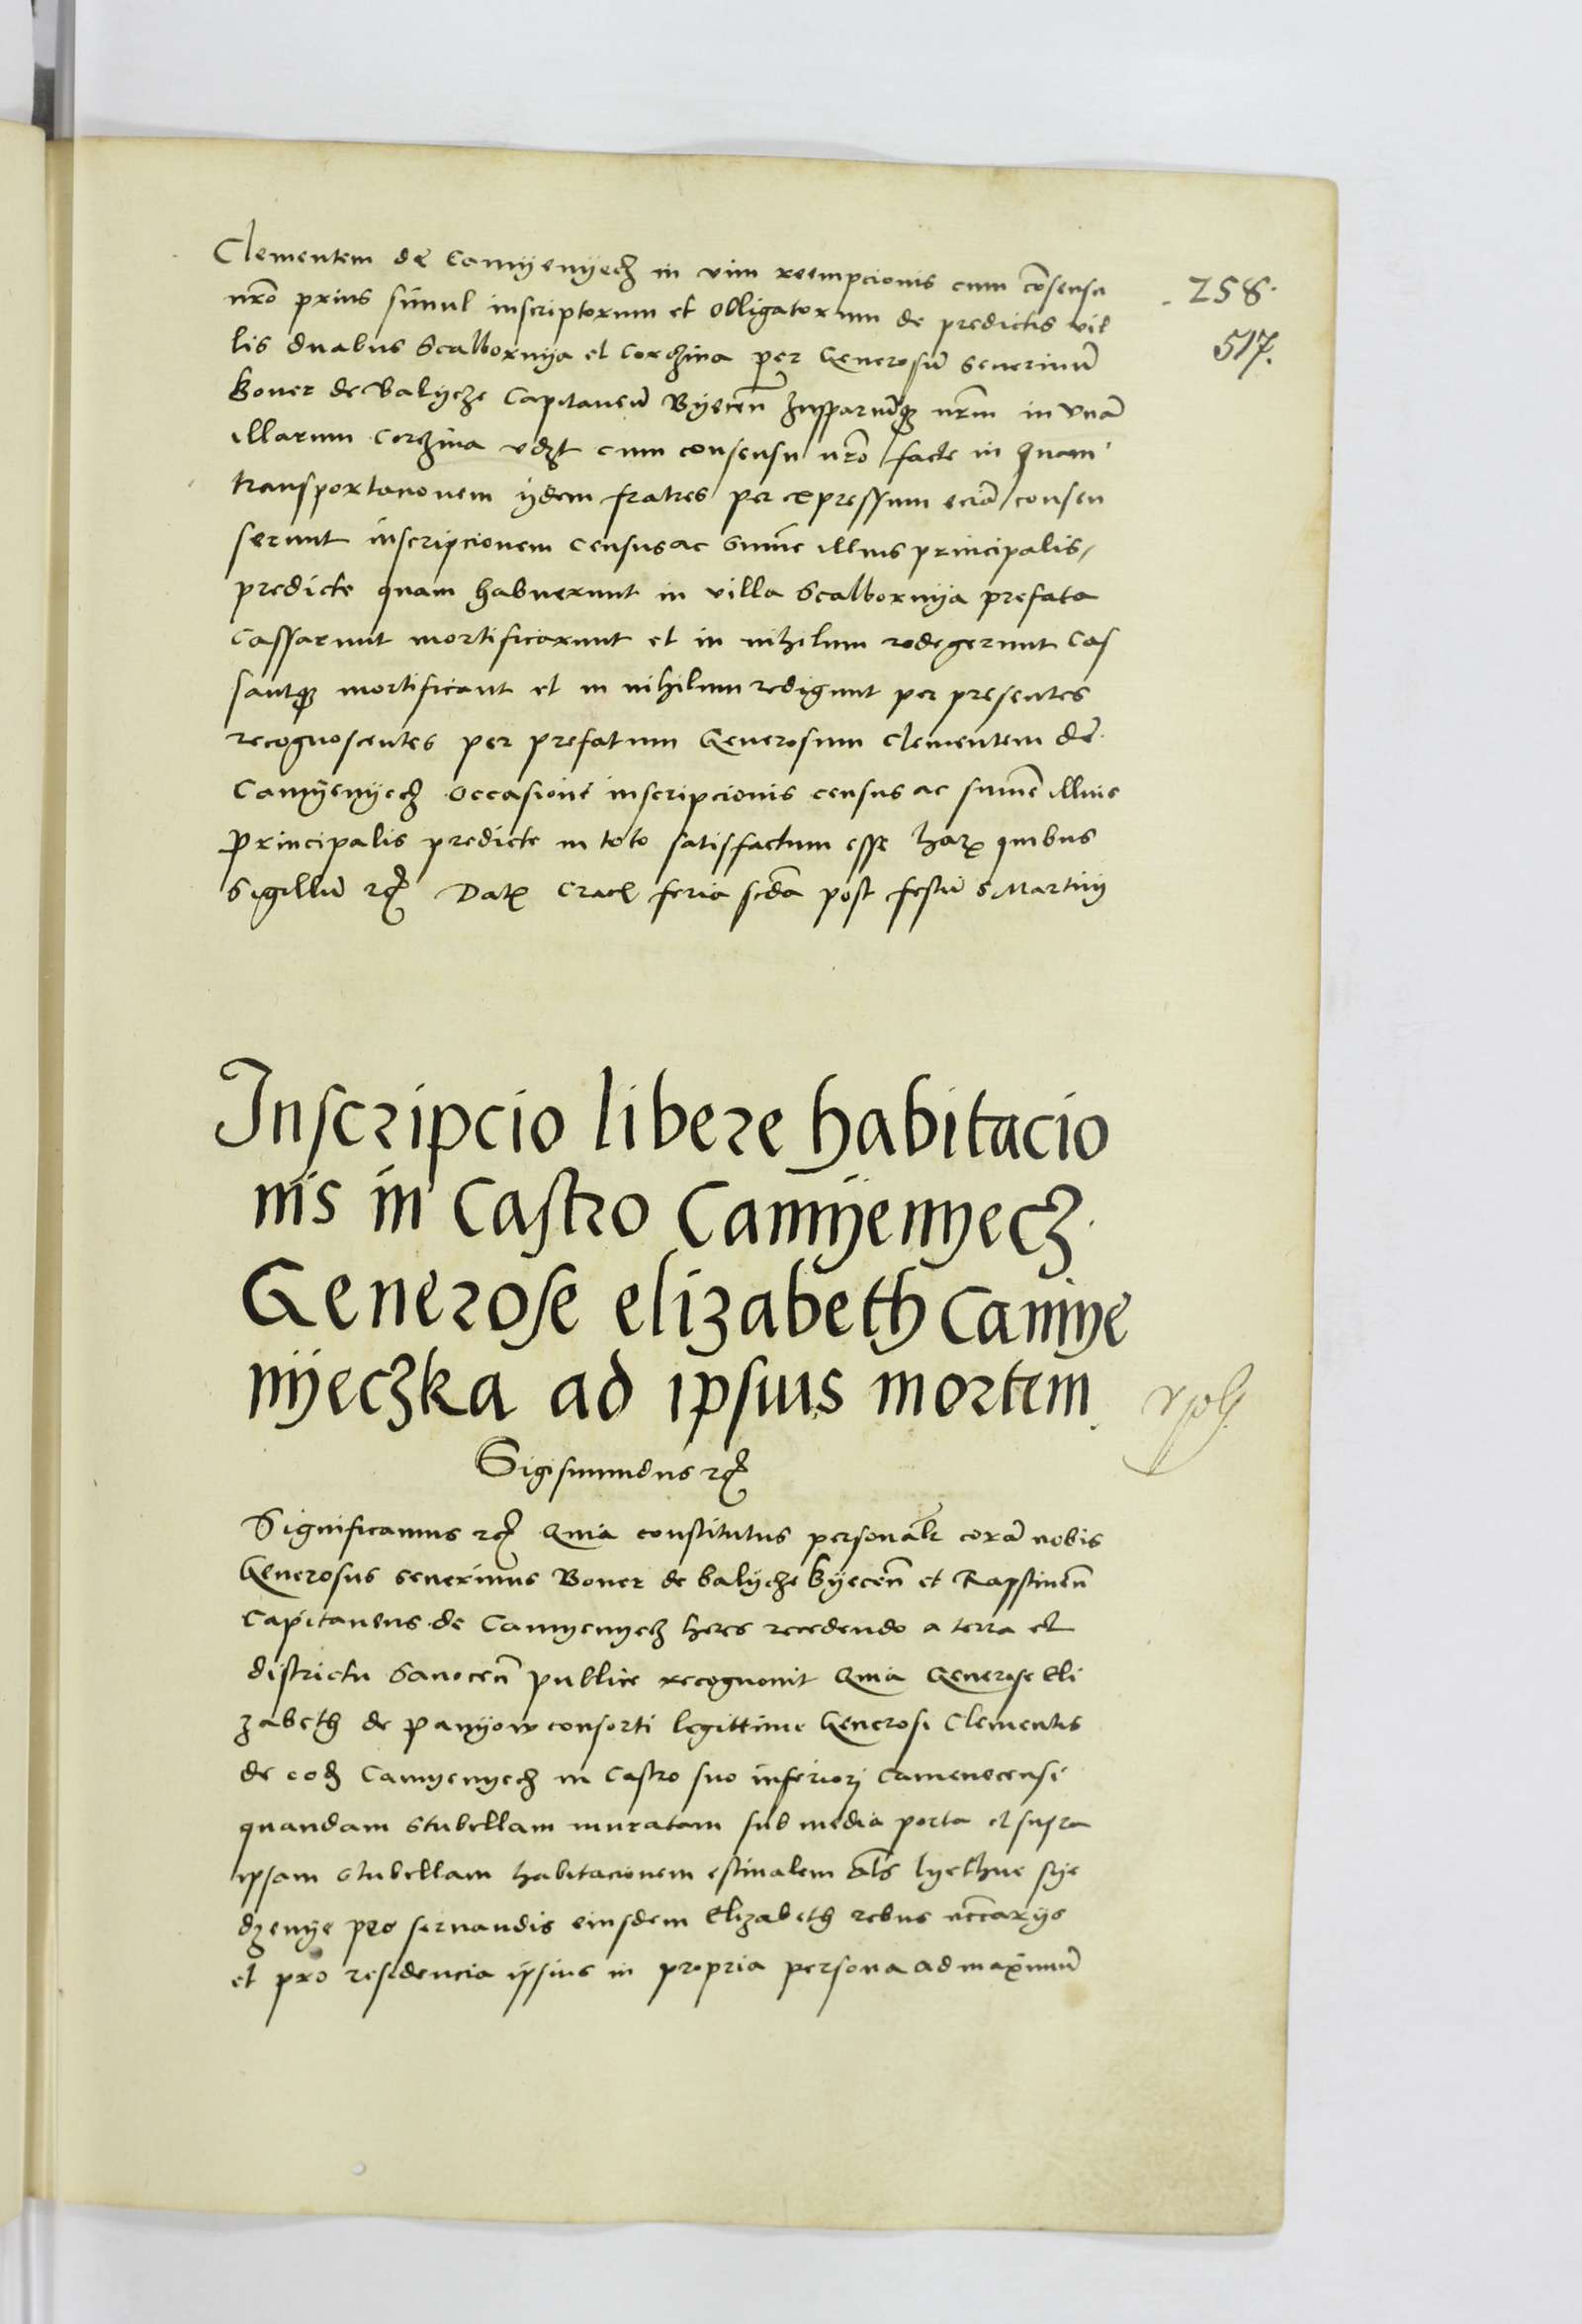 Clementem de Camyenyecz in vim reempcionis cum cõsensu
.258.
nro prius simul inscriptorum et obligatorum de predictis vil
517.
lis duabus Scalbornya et Corczina per Generosũ Severinũ
Boner de Balycze Capitaneũ Byecen̄ Zuppariũq nrm in vnã
illarum Corczina vdzt cum consensu nro facte in quam
transportacionem ijdem fratres per expressum eciã consen
serunt inscripcionem census ac summe illius principalis
predicte quam habuerunt in villa Scalbornya prefata
cassarunt mortificarunt et in nihilum redegerunt Cas
santq mortificant et in nihilum redigunt per presentes
recognoscentes per prefatum Generosum Clementem de
Camyenyecz occasione inscripcionis census ac summe illius
Principalis predicte in toto satisfactum esse harꝝ quibus
Sigillũ rc Datꝝ Crac feria scda post festũ S Martinj
Inscripcio libere habitacio
nis in Castro Camyenyecz
Generose elizabeth Camye
nyeczka ad ipsius mortem
Sigismundus rc
Significamus rc Quia constitutus personalr corã nobis
Generosus Severinus Boner de Balycze Byecen̄ et Rapstinen̄
Capitaneus de Camyenyecz heres recedendo a terra et
districtu Sanocen̄ publice recognouit Quia Generose Eli
zabeth de Panyow consorti legittime Generosi Clementis
de eod Camyenyecz in Castro suo inferiori Camenecensi
quandam stubellam muratam sub media porta et supra
ipsam stubellam habitacionem estiualem als lyethne sye
dzenye pro seruandis eiusdem Elizabeth rebus nccarijs
et pro residencia ipsius in propria persona ad maximũ